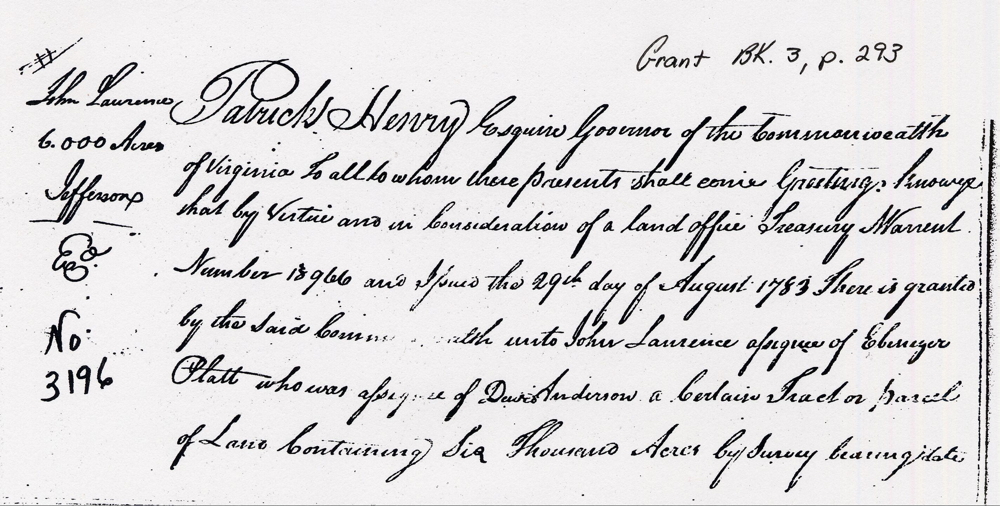 Grant BK. 3, p. 293
John Laurence
6.000 Acres
Jefferson
Exd
No.
3196
Patrick Henry Esquire Governor of the Commonwealth
of Virginia To all to whom these presents shall come Greeting. Know ye
that by Virtue and in Consideration of a land office Treasury Warrent
Number 18966 and Issued the 29th day of August 1783 There is granted
by the said Comm alth unto John Laurence assignee of Ebenezer
Platt who was assignee of David Anderson a Certain Tract or parcel
of Land Containing Six Thousand Acres by Survey bearing date